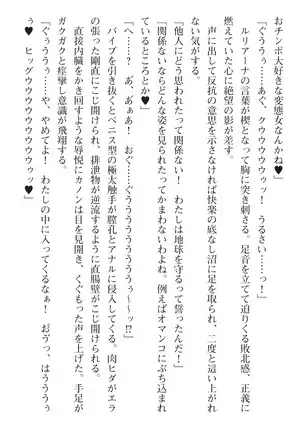 おチンポ大好きな変態女なんかね♥」
「ぐううう……あぐ、クウウウウウッ！　うるさい……っ！」
ルリアーナの言葉が楔となって胸に突き刺さる。足音を立てて迫りくる敗北感、正義に
燃えていた心に絶望の影が差す。
声に出して反抗の意思を示さなければ快楽の底なし沼に足を取られ、二度と這い上がれ
ない気がする。
「他人にどう思われたって関係ない！　わたしは地球を守るって誓ったんだ！」
「関係ないならどんな姿を見られたってかまわないわよね。例えばオマンコにぶち込まれ
ているところとか♥」
「へ……？　あ、あぁぁ！　おぐ……ぐううううううううぅ〜〜ッ!?」
バイブを引き抜くとペニス型の極太触手が膣孔とアナルに侵入してくる。肉ヒダがエラ
の張った剛直にこじ開けられ、排泄物が逆流するように直腸壁がこじ開けられる。
直接内臓をかき回すような辱悦にカノンは目を見開き、くぐもった声を上げた。手足が
ガクガクと痙攣し意識が飛翔する。
「ぐぅううう……や、やめてよ！　わたしの中に入ってくるなぁ！　おヴっ、はうううう
ぅ♥　ヒッグウウウウウウウウウウゥっ♥」